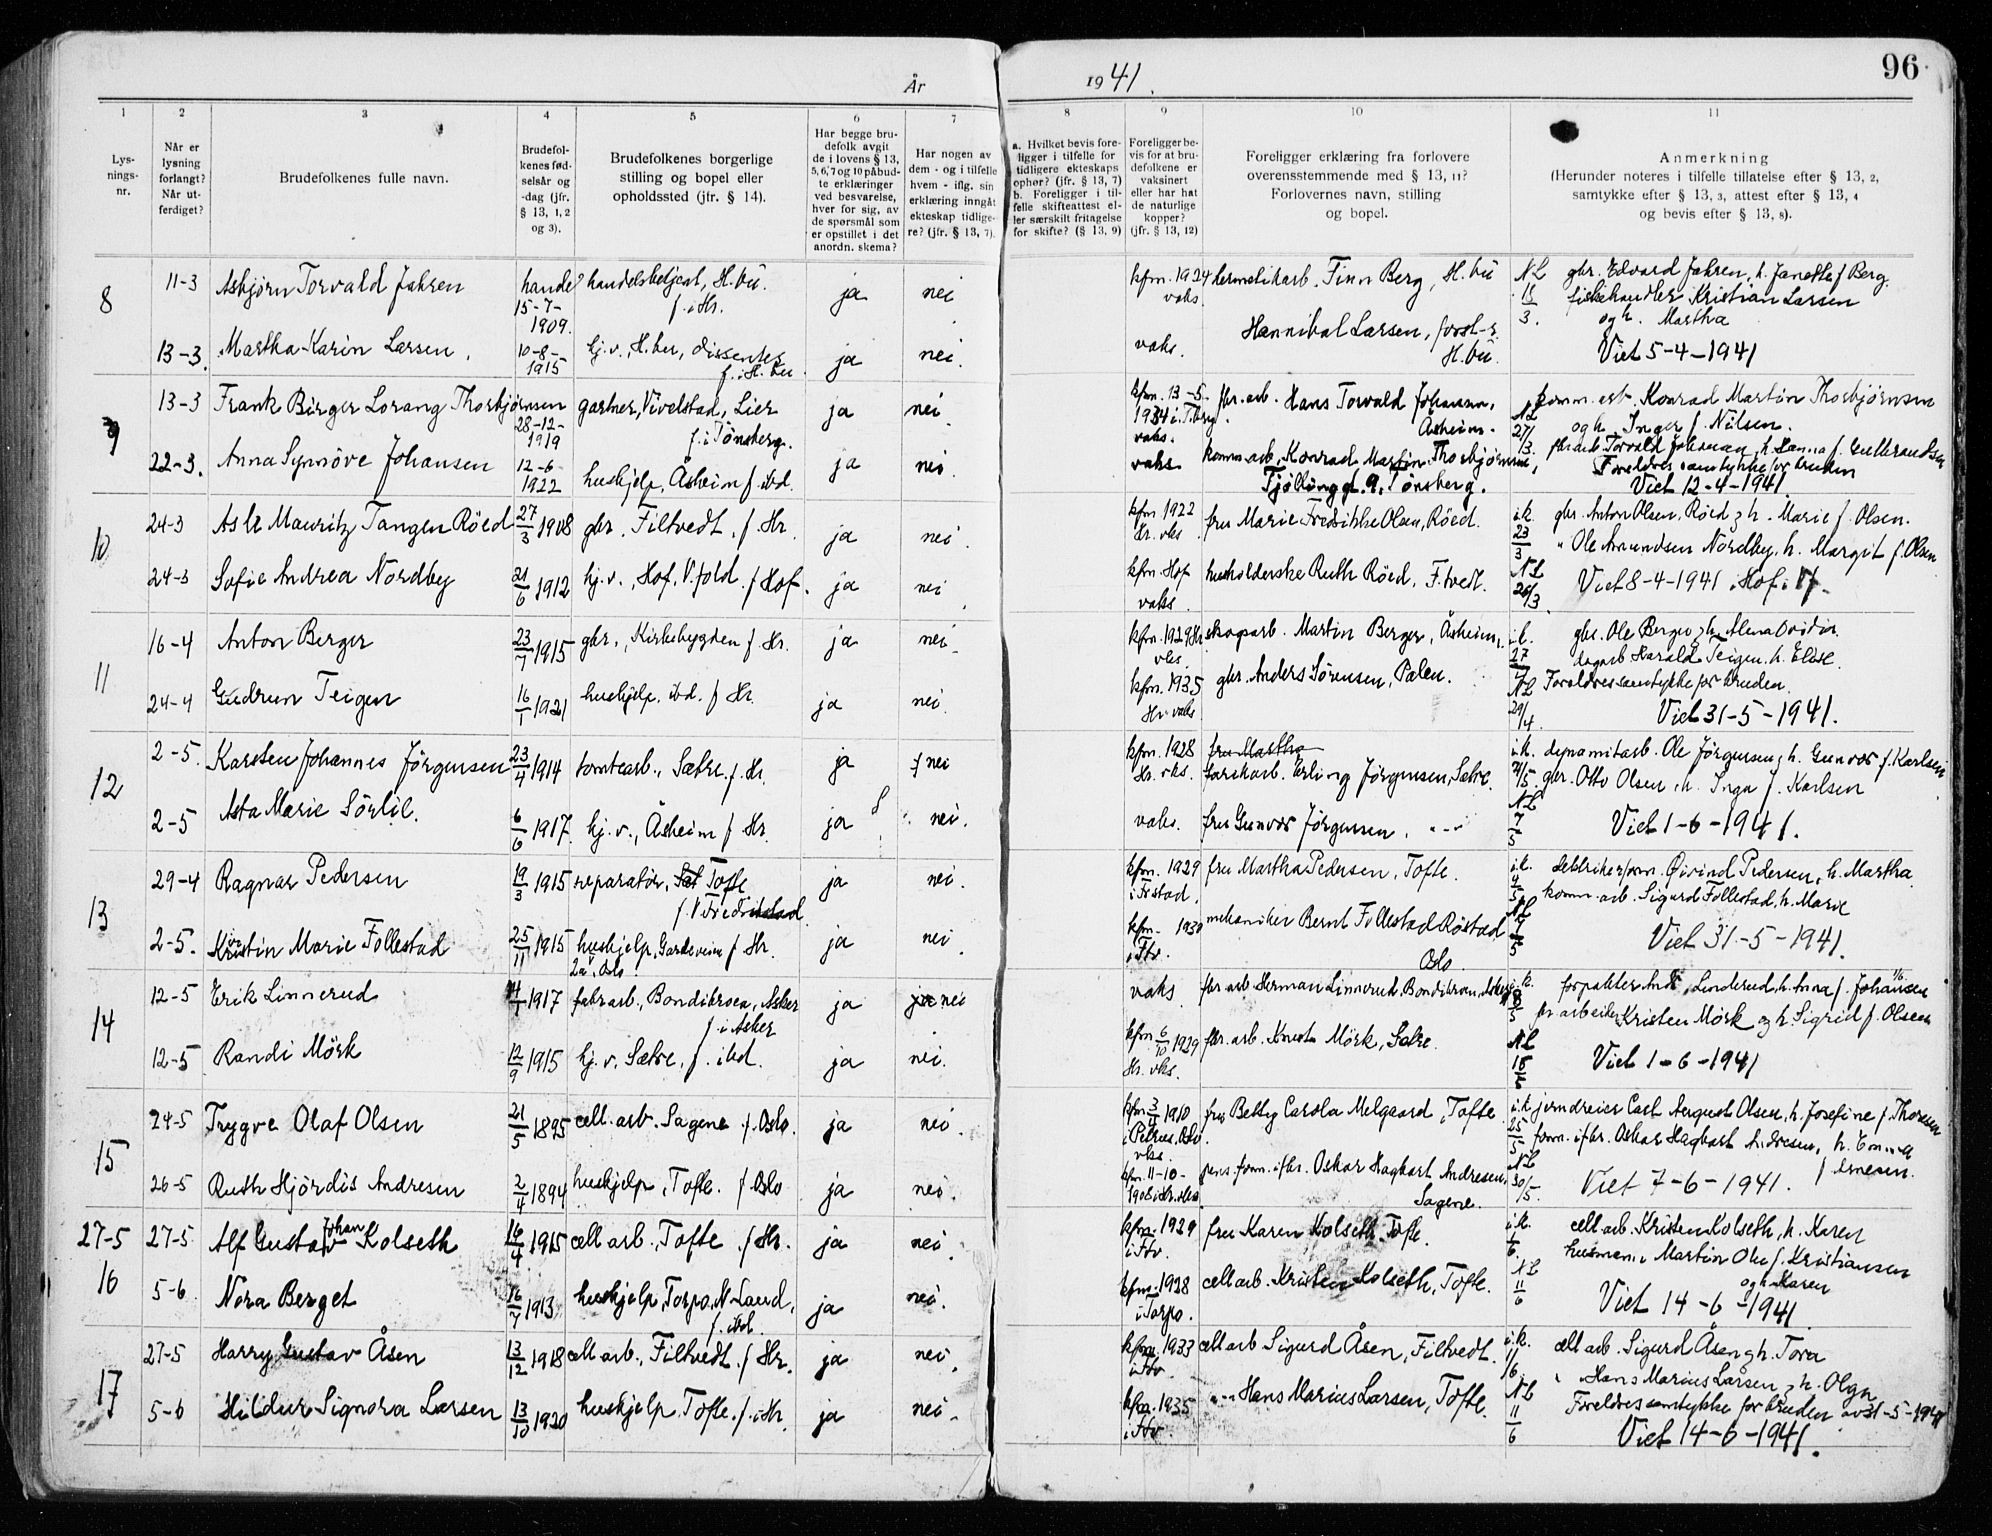 96
År 1941.
1 2 3 4 5 6 7 8 9 10 11
Lys-
nings-
nr.
Når er
lysning
forlangt?
Når ut-
ferdiget?
Brudefolkenes fulle navn.
Brudefol-
kenes fød-
selsår og
-dag (jfr.
§ 13, 1, 2
og 3).
Brudefolkenes borgerlige
stilling og bopel eller
opholdssted (jfr. § 14).
Har begge bru-
defolk avgit
de i lovens § 13,
5, 6, 7 og 10 påbud-
te erklæringer
ved besvarelse,
hver for sig, av
de spørsmål som
er opstillet i det
anordn. skema?
Har nogen av
dem - og i tilfelle
hvem - iflg. sin
erklæring inngåt
ekteskap tidlige-
re? (jfr. § 13, 7).
a. Hvilket bevis fore-
ligger i tilfelle for
tidligere ekteskaps
ophør? (jfr. § 13, 7)
b. Foreligger i til-
felle skifteattest el-
ler særskilt fritagelse
for skifte? (§ 13, 9)
Foreligger be-
vis for at bru-
defolkene er
vaksinert
eller har hat
de naturlige
kopper?
(jfr. § 13, 12)
Foreligger erklæring fra forlovere
overensstemmende med § 13, 11?
Forlovernes navn, stilling
og bopel.
Anmerkning
(Herunder noteres i tilfelle tillatelse efter § 13, 2,
samtykke efter § 13, 3, attest efter § 13, 4
og bevis efter § 13, 8).
8 11-3 Asbjørn Torvald Jahren 15-7-1909. handelsbetjent, H.bu. f. i Hr. ja nei kfm. 1924 vaks. hermetikarb. Finn Berg, H.bu NL 15/3. gbr. Edvard Jahren, h. Janette f Berg.
fiskehandler Kristian Larsen
og h. Martha
13-3. Martha Karin Larsen, 10-8-1915 hj.v., H.bu, dissenter f. i H.bu ja nei. vaks. Hannibal Larsen, H.bu. Viet 5-4-1941
9 13-3 Frank Birger Lorang Thorbjørnsen 28-12-1919 gartner, Vivelstad, Lier f. i Tønsberg. ja nei. kfm. 13-5-1934 i T.berg. vaks. fbr. arb. Hans Torvald Johansen, Åsheim. NL 27/3. komm. arb. Konrad Martin Thorbjørnsen
og h. Inger f. Nilsen.
22-3. Anna Synnöve Johansen 12-6-1922 huskjelp, Åsheim f. ibd. ja nei. vaks komm. arb. Konrad Martin Thorbjørnsen, Tjøllinggt. 9, Tønsberg. fbr. arb. Torvald Johansen, h. Hanna f. Gulbrandsen
Foreldres samtykke for bruden
Viet 12-4-1941
10 24-3 Asle Mauritz Tangen Röed 27/3 1908 gbr. Filtvedt, f Hr. ja nei. kfm 1922 Hr. vks. fru Marie Fredrikke Olsen, Röed. i.k. 23/3 gbr. Anton Olsen, Röed og h. Marie f. Olsen.
24-3 Sofie Andrea Nordby 21/6 1912 hj.v., Hof, V.fold. f Hof. ja nei kfm. Hof vaks. husholderske Ruth Röed, F.tvedt. NL 28/3. " Ole Amundsen Nordby, h. Margit f. Olsen
Viet 8-4-1941 i Hof i Vf.
11 16-4 Anton Berger 23/7 1915 gbr., Kirkebygden f. Hr. ja nei. kfm. 1929 Hr. vks. skogarb. Martin Berger, Åsheim, i.k. 27 gbr. Ole Berger og h. Alena
24-4 Gudrun Teigen 16/1 1921 huskjelp, ibd. f Hr ja nei. kfm. 1935 Hr. vaks gbr. Anders Sörensen, Pålen. NL 29/4. dagarb Harald Teigen, h. Elise.
Foreldresamtykke for bruden.
Viet 31-5-1941.
12 2-5. Karsten Johannes Jörgensen 23/4 1914 tomtearb., Sætre. f. Hr. ja nei kfm. 1928 Hr. vks. fru Martha
fabrikarb. Erling Jörgensen, Sætre. i.k. 2/5. dynamitarb. Ole Jörgensen, h. Gunvor f. Karlsen
2-5 Asta Marie Sörlie. 6/6 1917. hj.v., Åsheim f Hr. ja nei. vaks. fru Gunvor Jörgensen, - " - NL 7/5 gbr. Otto Olsen, h. Inga f. Karlsen
Viet 1-6-1941.
13 29-4 Ragnar Pedersen 19/3 1915 reparatör, Sæt Tofte f. V. Fredrikstad ja nei. kfm. 1929 i Frstad. fru Martha Pedersen, Tofte. i.k. 4/5. Öivind Pedersen, h. Martha.
2-5. Kirstin Marie Follestad 25/11 1915 huskjelp, Oslo. f Hr. ja nei. kfm- 1930 i Ftv. mekaniker Bernt Follestad Röstad Oslo. NL 7/5 komm. arb. Sigurd Follestad, h. Marie
Viet 31-5-1941.
14 12-5 Erik Linnerud 1917 fabr arb., Bondibroen, Asker f. i Asker ja ja nei vaks fbr. arb Herman Linnerud, Bondibroen, Asker i.k. 18/5 forpakter Linderud, h. Anna f. Johansen
12-5 Randi Mörk 12/9 1915 hj.v. Sætre, f. ibd. ja nei. kfm 6/10 1929 Hr. vks. fbr. arb. Knut Mörk, Sætre. NL fbr arbeider Kristen Mörk og h. Sigrid f. Olsen
Viet 1-6-1941
15 24-5 Trygve Olaf Olsen 21/5 1895 cell. arb. Sagene f. Oslo. ja nei. kfm 3/4 1910 i Petrus, Oslo. vks. fru Betty Carola Melgaard, Tofte i.k. 25/5 jerndreier Carl August Olsen, h. Josefine f. Thoresen
26-5 Ruth Hjördis Andresen 2/4 1894 huskjelp, Tofte. f Oslo ja nei. kfm. 11-10-1908 i Hr. vks pens. form. i fbr. Oskar Hagbart Andresen, Sagene. NL 30/5. form. i fbr. Oskar Hagbart Andresen, h. Emma f Arnesen.
Viet 7-6-1941.
27-5
16 27-5 Alf Gustav Johan Kolseth 16/4 1915 cell arb., Tofte f. Hr. ja nei. kfm. 1929 i Ftv. fru Karen Kolseth, Tofte. i.k. 1/6. cell arb. Kristen Kolseth, h. Karen
5-6. Nora Berget 16/7 1913 huskjelp, Torpo, N. Land, f. ibd. ja nei. kfm. 1928 i Torpo. cell arb. Kristen Kolseth, Tofte. NL 11/6 husmann Martin Kristiansen
og h. Karen
Viet 14-6-1941.
17 27-5 Harry Gustav Åsen 13/12 1918 cell arb., Filtvedt. f Hr. ja nei. kfm. 1933 i Ftv cell arb Sigurd Åsen, Filtvedt. i.k. 1/6. cell arb. Sigurd Åsen og h. Tora
5-6 Hildur Signora Larsen 13/10 1920 huskjelp Tofte. f. i Hr. ja nei. kfm. 1935 i Ftv - " - Hans Marius Larsen, Tofte. NL 11/6 " Hans Marius Larsen og h. Olga
Foreldresamtykke for bruden av 31-5-1941
Viet 14-6-1941.